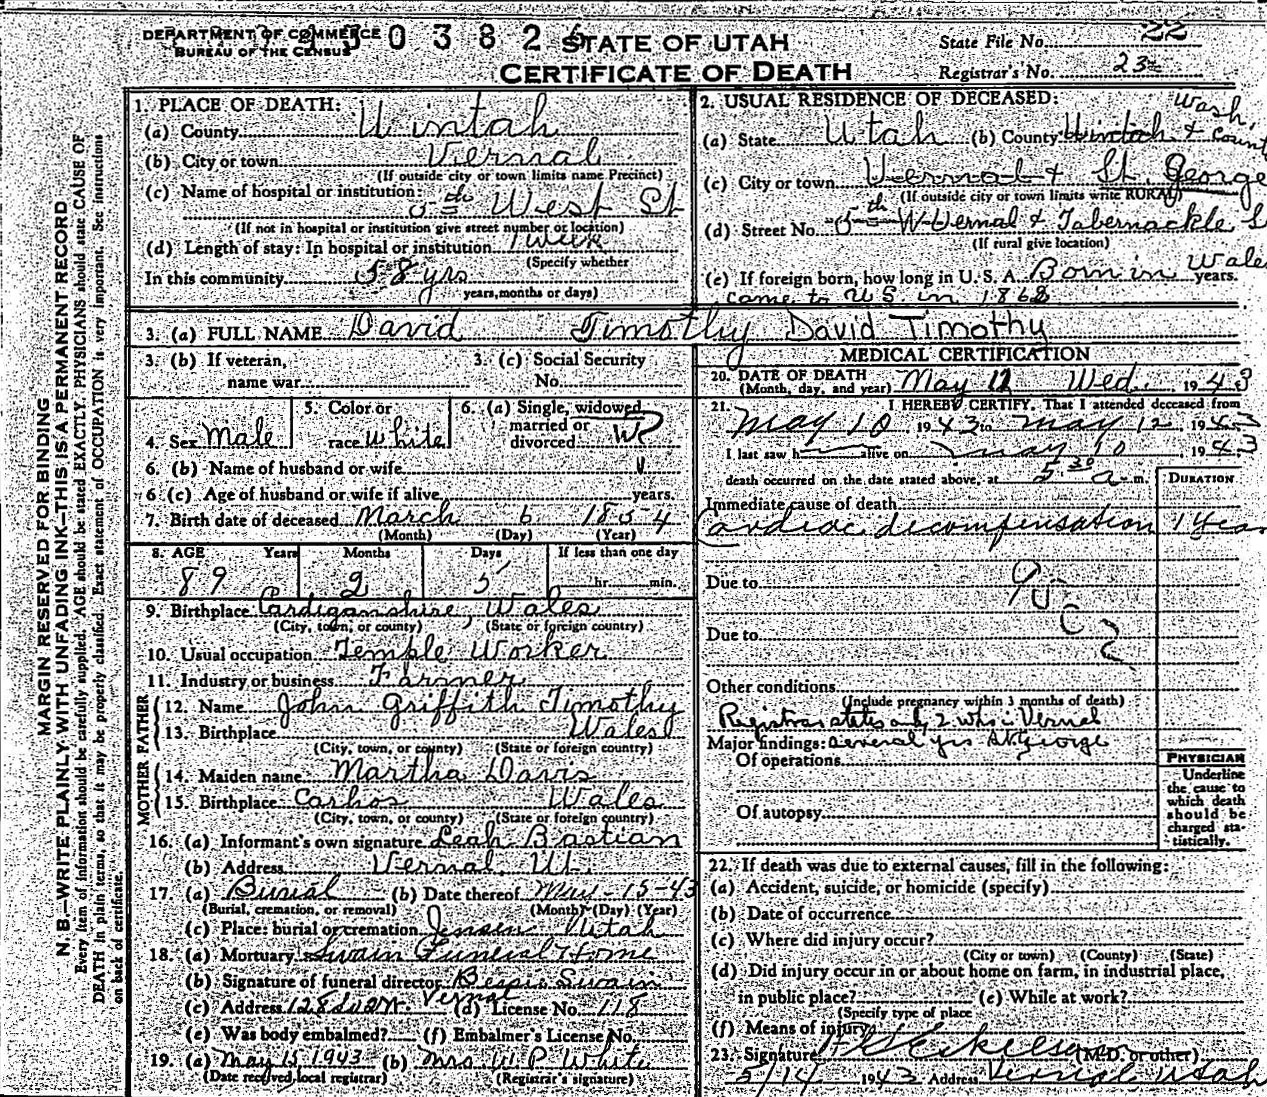 DEPARTMENT OF COMMERCE
BUREAU OF THE CENSUS
STATE OF UTAH
CERTIFICATE OF DEATH
State File No. 22
Registrar's No. 23
MARGIN RESERVED FOR BINDING
N. B.—WRITE PLAINLY, WITH UNFADING INK—THIS IS A PERMANENT RECORD
Every item of information should be carefully supplied. AGE should be stated EXACTLY. PHYSICIANS should state CAUSE OF
DEATH in plain terms, so that it may be properly classified. Exact statement of OCCUPATION is very important. See instructions
on back of certificate.
1. PLACE OF DEATH:
(a) County Uintah
(b) City or town Vernal
(If outside city or town limits name Precinct)
(c) Name of hospital or institution:
5th West St
(If not in hospital or institution give street number or location)
(d) Length of stay: In hospital or institution 1 week
(Specify whether
In this community 58 yrs
years, months or days)
2. USUAL RESIDENCE OF DECEASED:
Wash.
(a) State Utah (b) County Uintah +
(c) City or town Vernal + St. George
(If outside city or town limits write RURAL)
(d) Street No. 5th W Vernal + Tabernackle St
(If rural give location)
(e) If foreign born, how long in U. S. A. Born in Wales years.
came to US in 1868
3. (a) FULL NAME David Timothy David Timothy
3. (b) If veteran,
name war
3. (c) Social Security
No.
4. Sex Male
5. Color or
race White
6. (a) Single, widowed,
married or
divorced
6. (b) Name of husband or wife
6. (c) Age of husband or wife if alive years.
7. Birth date of deceased March 6 1854
(Month) (Day) (Year)
8. AGE Years Months Days If less than one day
89 2 5 hr. min.
9. Birthplace Cardiganshire, Wales
(City, town, or county) (State or foreign country)
10. Usual occupation Temple Worker
11. Industry or business Farmer
FATHER
12. Name John Griffith Timothy
13. Birthplace Wales
(City, town, or county) (State or foreign country)
MOTHER
14. Maiden name Martha Davis
15. Birthplace Carhos Wales
(City, town, or county) (State or foreign country)
16. (a) Informant's own signature Leah Bastian
(b) Address Vernal, Ut.
17. (a) Burial (b) Date thereof May-15-43
(Burial, cremation, or removal) (Month) (Day) (Year)
(c) Place: burial or cremation Jensen Utah
18. (a) Mortuary Swain Funeral Home
(b) Signature of funeral director Swain
(c) Address Vernal (d) License No. 118
(e) Was body embalmed? (f) Embalmer's License No.
19. (a) May 15 1943 (b) Mrs. W P White
(Date received, local registrar) (Registrar's signature)
MEDICAL CERTIFICATION
20. DATE OF DEATH
(Month, day, and year) May Wed. 1943
21. I HEREBY CERTIFY, That I attended deceased from
May 10 1943 to May 12, 1943
I last saw h alive on May 10, 1943
death occurred on the date stated above, at 5:30 a m.
DURATION
Immediate cause of death
Cardiac decompensation 1 Year
Due to
Due to
Other conditions
(Include pregnancy within 3 months of death)
Registrar states only 2 wks in Vernal
Major findings: several yrs St George
Of operations
Of autopsy
PHYSICIAN
Underline
the cause to
which death
should be
charged sta-
tistically.
22. If death was due to external causes, fill in the following:
(a) Accident, suicide, or homicide (specify)
(b) Date of occurrence
(c) Where did injury occur?
(City or town) (County) (State)
(d) Did injury occur in or about home on farm, in industrial place,
in public place? (e) While at work?
(Specify type of place
(f) Means of injury
23. Signature Eskelson (M.D. or other)
5/14 1943 Address Vernal Utah